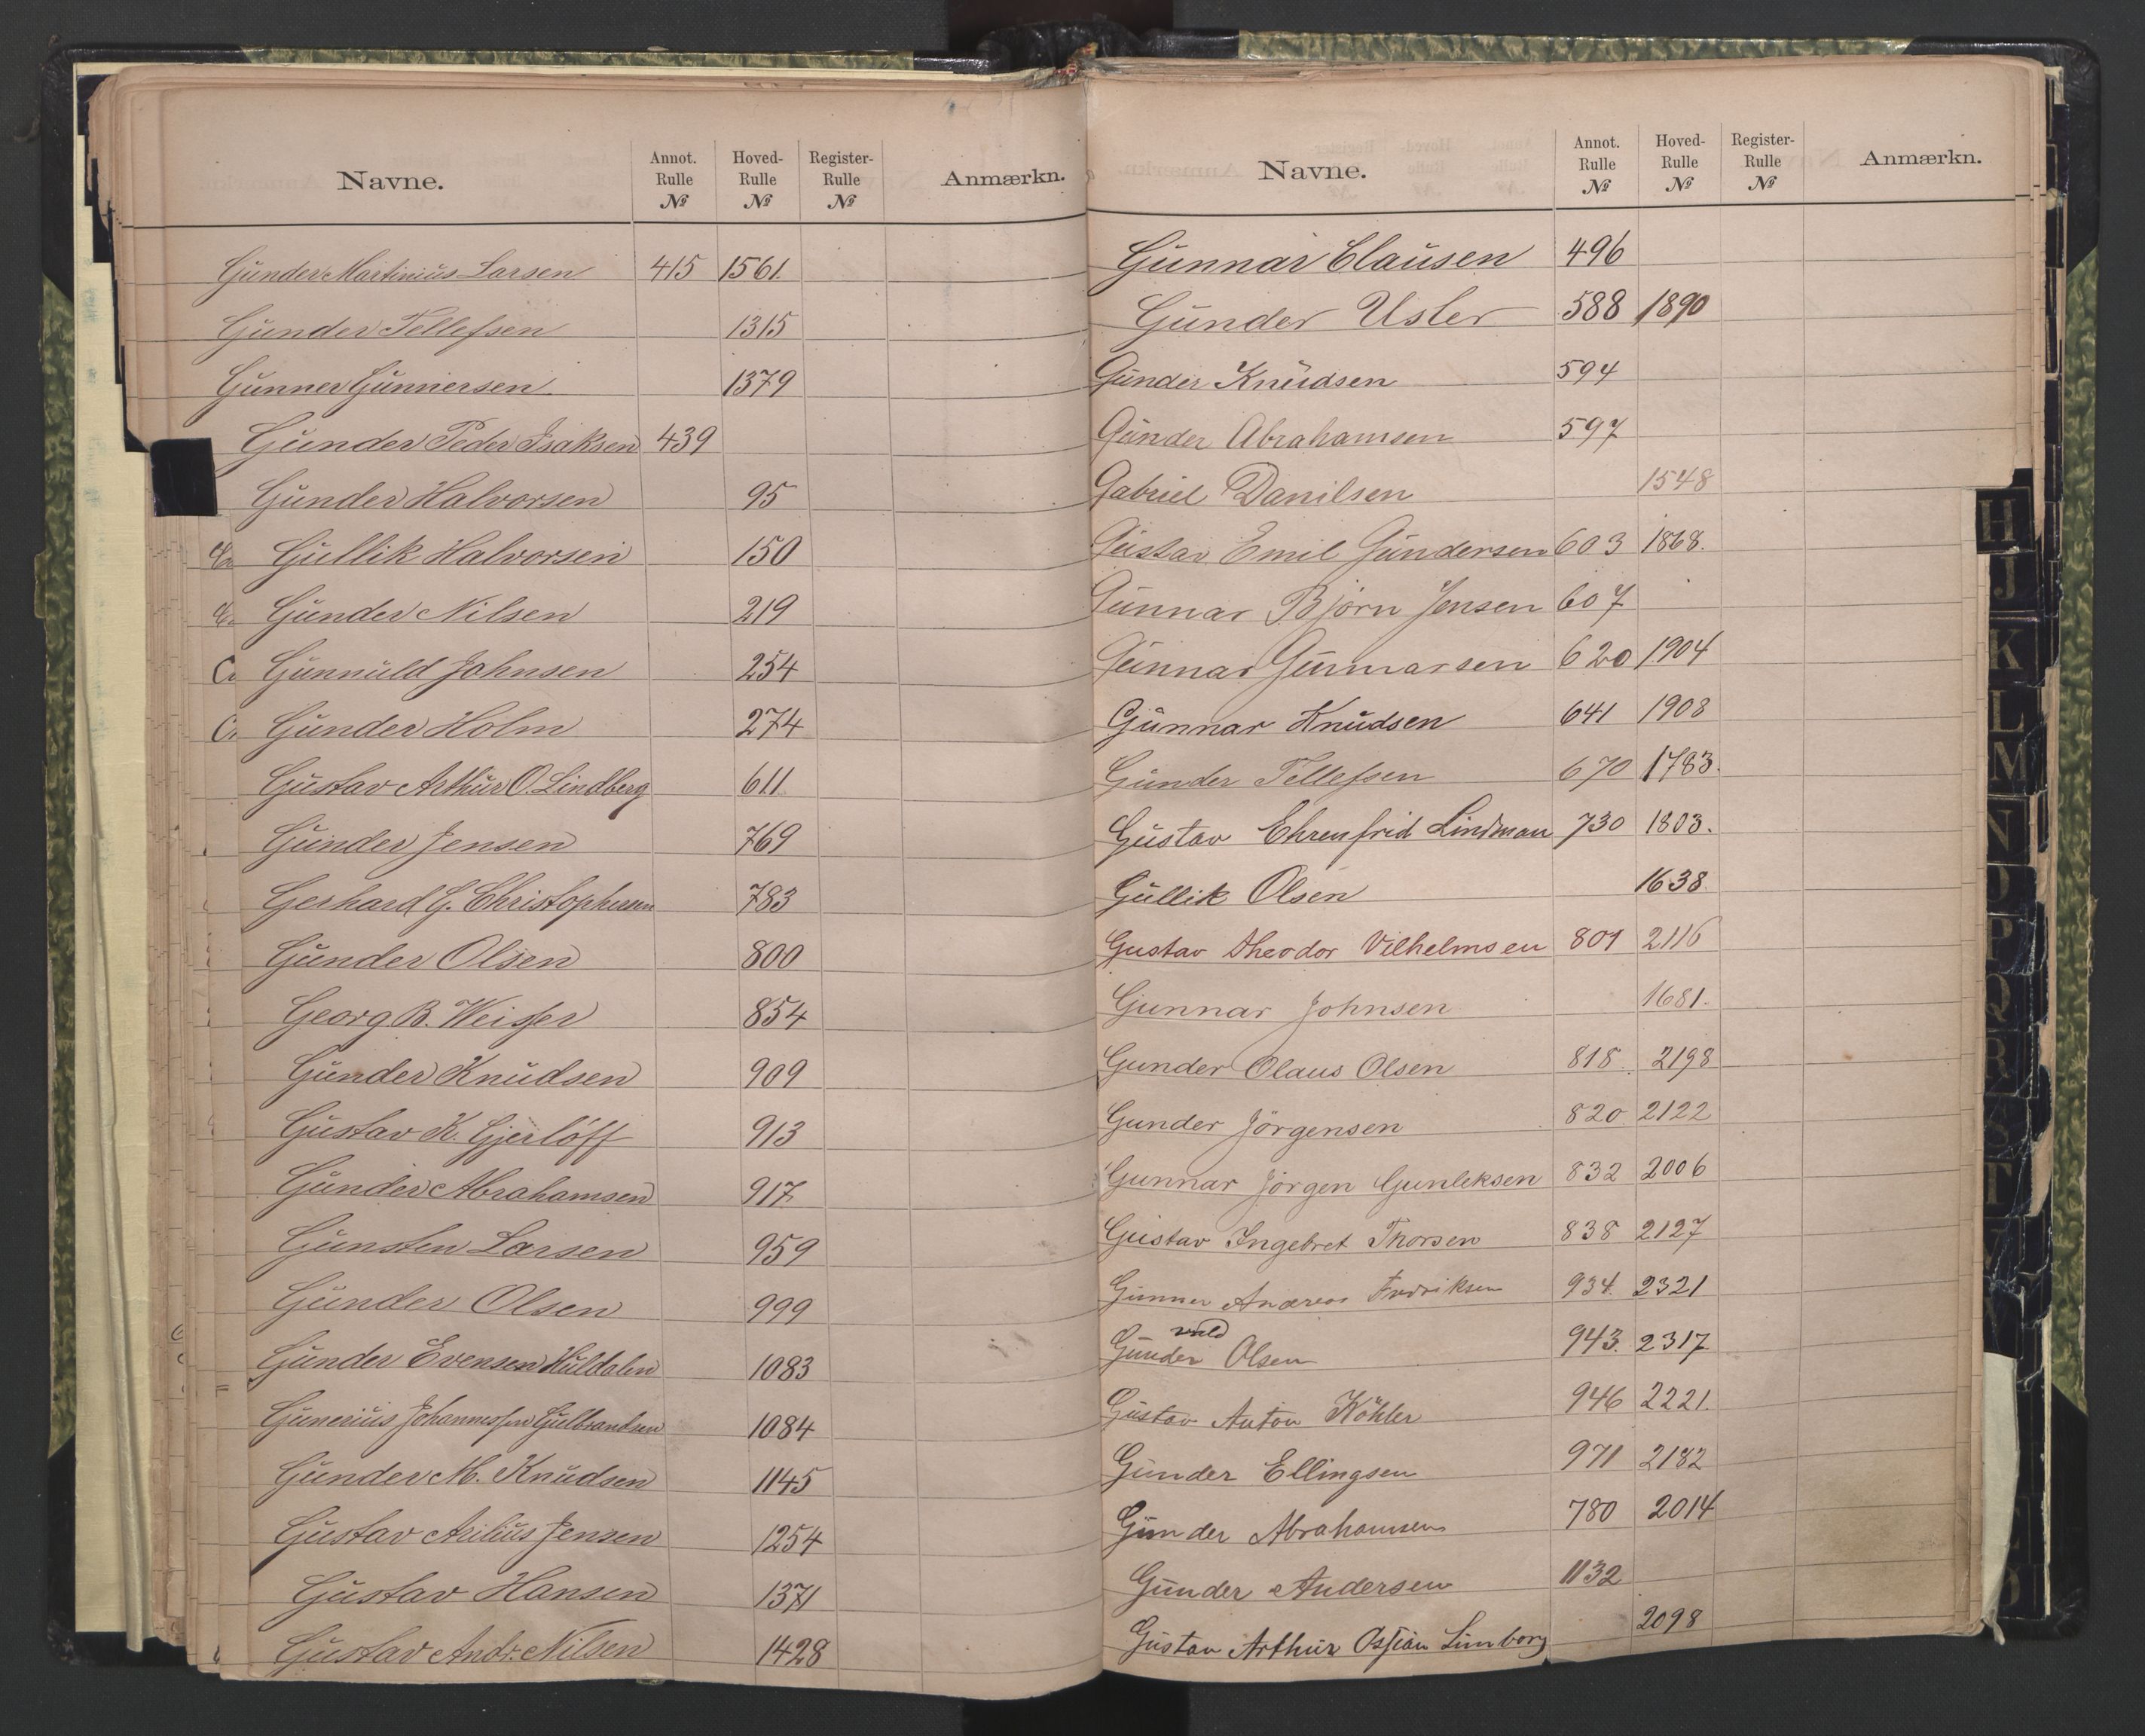 Navne. Annot. Rulle № Hoved- Rulle № Register- Rulle № Anmærkn.
Gunder Martinius Larsen 415 1561.
Gunder Tellefsen 1315
Gunner Gunnersen 1379
Gunder Peder Isaksen 439
Gunder Halvorsen 95
Gullik Halvorsen 150
Gunder Nilsen 219
Gunnuld Johnsen 254
Gunder Holm 274
Gustav Arthur O. Lindberg 611
Gunder Jensen 769
Gerhard G. Christophersen 783
Gunder Olsen 800
Georg B. Weisser 854
Gunder Knudsen 909
Gustav K. Gjerlöff 913
Gunder Abrahamsen 917
Gunsten Larsen 959
Gunder Olsen 999
Gunder Evensen Huldalen 1083
Gunerius Johannessen Gulbrandsen 1084
Gunder M. Knudsen 1145
Gustav Arilius Jensen 1254
Gustav Hansen 1371
Gustav Andr. Nilsen 1428
Navne. Annot. Rulle № Hoved- Rulle № Register- Rulle № Anmærkn.
Gunnar Clausen 496
Gunder Usler 588 1890
Gunder Knudsen 594
Gunder Abrahamsen 597
Gabriel Danilsen 1548
Gustav Emil Gundersen 603 1868.
Gunnar Björn Jensen 607
Gunnar Gunnarsen 620 1904
Gunnar Knudsen 641 1908
Gunder Tellefsen 670 1783.
Gustav Ehrenfrid Lindman 730 1803.
Gullik Olsen 1638
Gustav Theodor Vilhelmsen 801 2116
Gunnar Johnsen 1681.
Gunder Olaus Olsen 818 2198
Gunder Jörgensen 820 2122
Gunnar Jörgen Gunleksen 832 2006
Gustav Ingebret Thorsen 838 2127
Gunner Andreas Fredriksen 934. 2321
vuld
Gunder Olsen 943. 2317
Gustav Anton Köhler 946 2221.
Gunder Ellingsen 971 2182
Gunder Abrahamsen 780 2014
Gunder Andersen 1132
Gustav Arthur Ossian Limborg 2098
H
J
K
L
M
N
O
P
Q
R
S
T